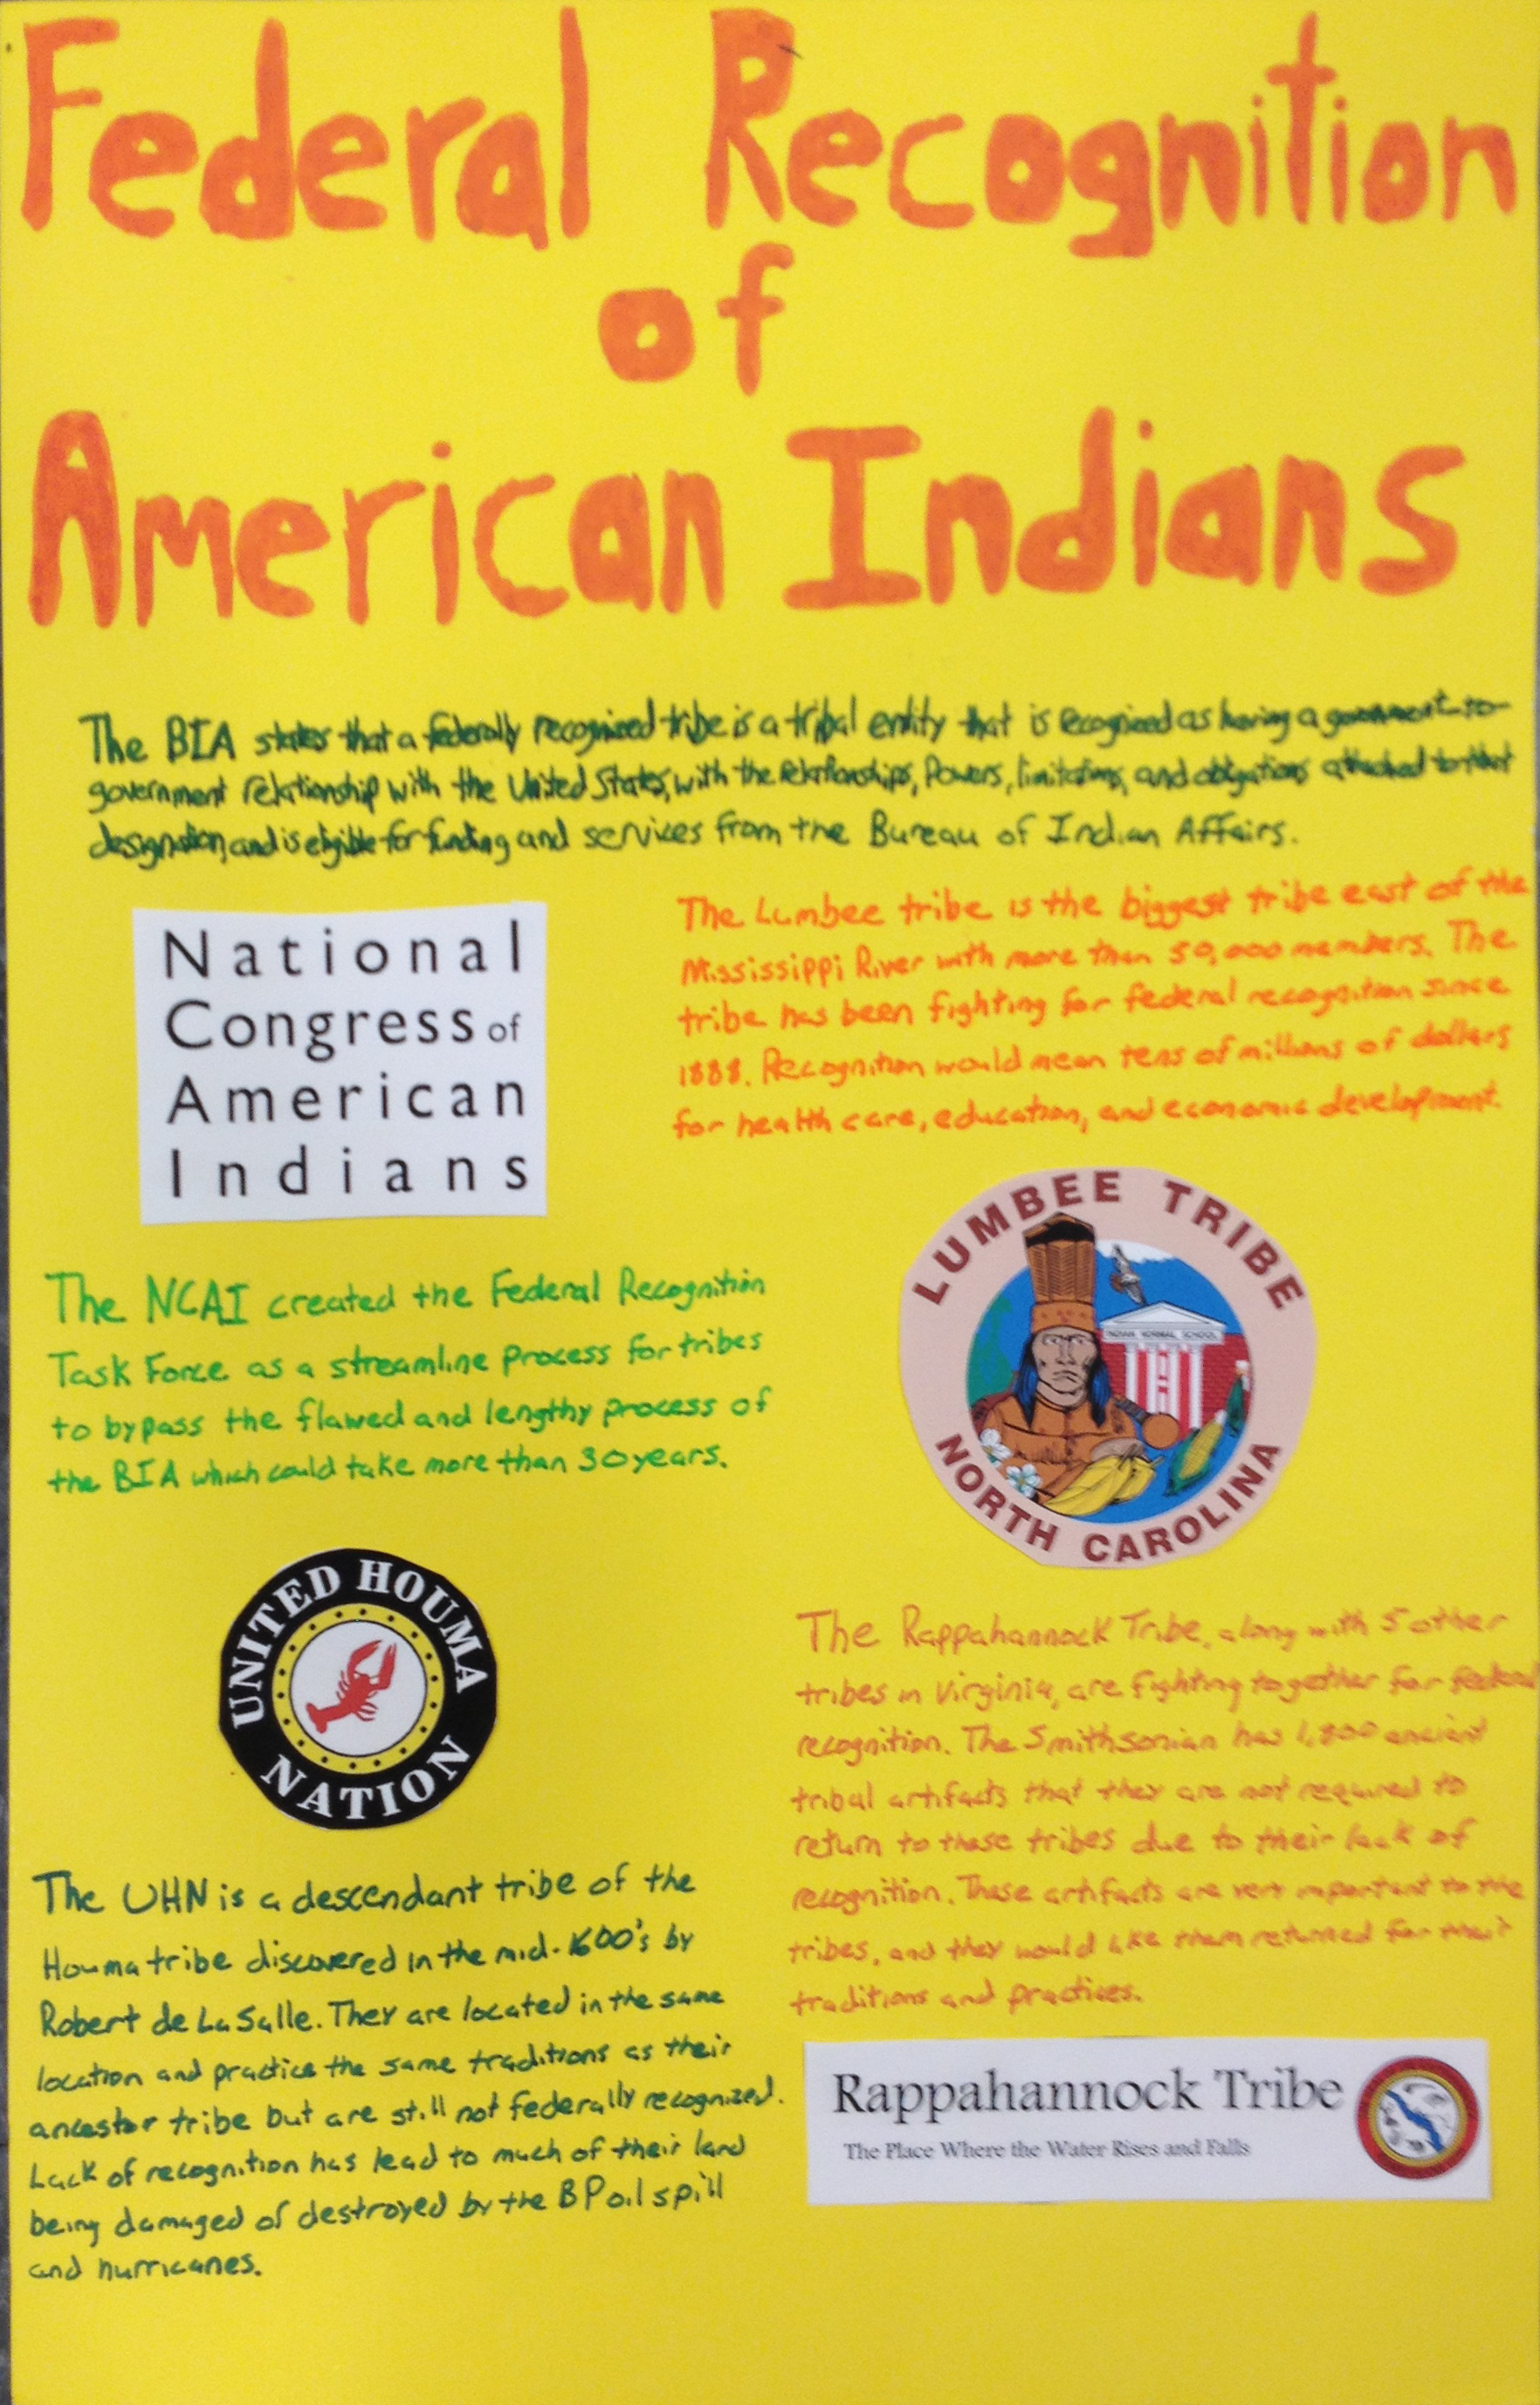 Federal Recognition
of
American Indians
The BIA states that a federally recognized tribe is a tribal entity that is recognized as having a government-to-
government relationship with the United States, with the relationships, Powers, limitations, and obligations attached to that
designation, and is eligible for funding and services from the Bureau of Indian Affairs.
National
Congress of
American
Indians
The NCAI created the Federal Recognition
Task Force as a streamline process for tribes
to bypass the flawed and lengthy process of
the BIA which could take more than 30 years.
UNITED HOUMA
NATION
The UHN is a descendant tribe of the
Houma tribe discovered in the mid-1600's by
Robert de La Salle. They are located in the same
location and practice the same traditions as their
ancestor tribe but are still not federally recognized.
Lack of recognition has lead to much of their land
being damaged of destroyed by the BP oil spill
and hurricanes.
The Lumbee tribe is the biggest tribe east of the
Mississippi River with more than 50,000 members. The
tribe has been fighting for federal recognition since
1888. Recognition would mean tens of millions of dollars
for health care, education, and economic development.
LUMBEE TRIBE
INDIAN NORMAL SCHOOL
NORTH CAROLINA
The Rappahannock Tribe, along with 5 other
tribes in Virginia, are fighting together for federal
recognition. The Smithsonian has 1,800 ancient
tribal artifacts that they are not required to
return to these tribes due to their lack of
recognition. These artifacts are very important to the
tribes, and they would like them returned for their
traditions and practices.
Rappahannock Tribe
The Place Where the Water Rises and Falls